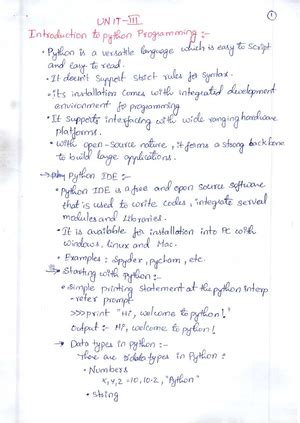 ①
UNIT-III
Introduction to python Programming :-
• Python is a versatile language which is easy to script
and easy to read.
• It doesn't support strict rules for syntax.
• its installation comes with integrated development
environment for programming
• It supports interfacing with wide ranging hardware
platforms.
• with open-source nature, it forms a strong backbone
to build large applications.
→ Python IDE :-
• Python IDE is a free and open source software
that is used to write codes, integrate serveral
modules and Libraries.
• It is available for installation into PC with
windows, linux and Mac.
• Examples : Spyder, pycham, etc.
→ Starting with python :-
• simple printing statement at the python interp
-reter prompt
>>> print "Hi, welcome to python!"
output :- Hi, welcome to python!
→ Data types in python :-
There are data types in Python :-
• Numbers
x,y,z = 10,10.2,"Python"
• string